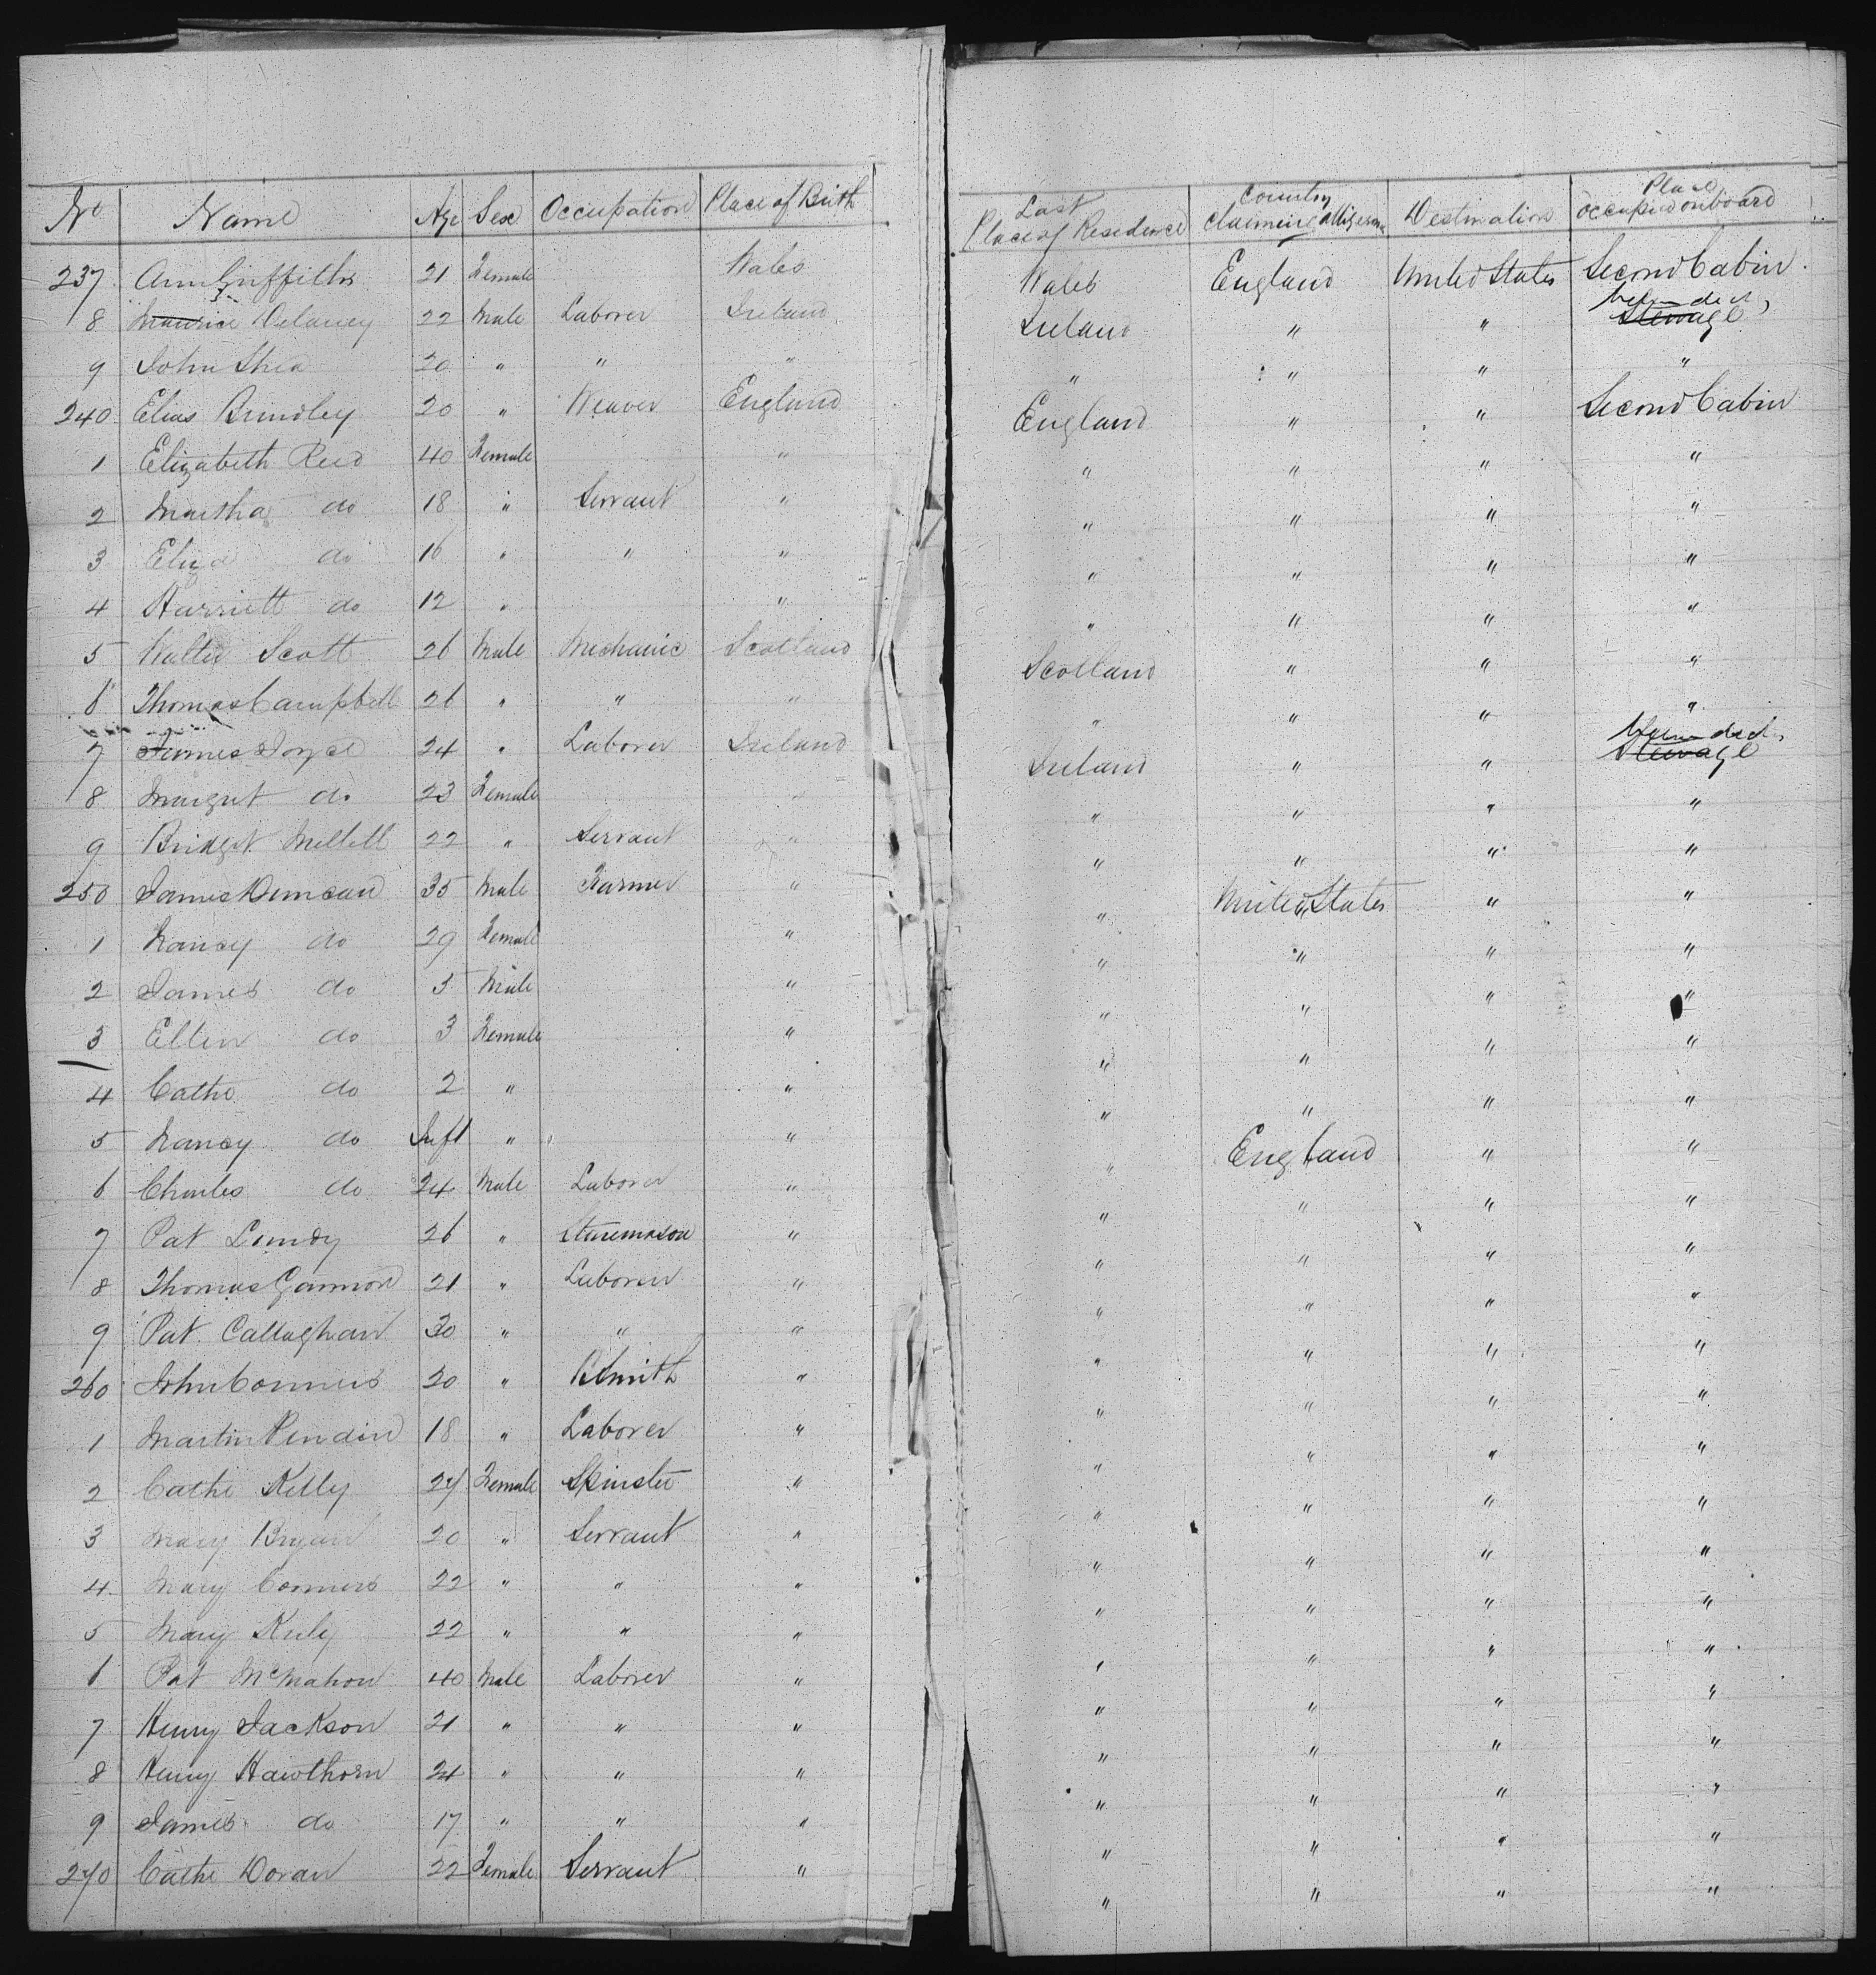 No Name Age Sex Occupation Place of Birth Last Place of Residence Country Claiming Allegiance Destination Place occupied onboard
237 Ann Griffiths 21 Female Wales Wales England United States Second Cabin
8 Maurice Delaney 22 Male Laborer Ireland Ireland " " Between decks Steerage
9 John Shea 20 " " " " " " "
240 Elias Brindley 20 " Weaver England England " " Second Cabin
1 Elizabeth Reed 40 Female " " " " "
2 Martha do 18 " Servant " " " " "
3 Eliza do 16 " " " " " " "
4 Harriett do 12 " " " " " "
5 Walter Scott 26 Male Mechanic Scotland Scotland " " "
6 Thomas Campbell 26 " " " " " " "
7 James Joyce 24 " Laborer Ireland Ireland " " Between decks Steerage
8 Margret do 23 Female " " " " "
9 Bridget Mellett 22 " Servant " " " " "
250 James Duncan 35 Male Farmer " " United States " "
1 Nancy do 29 Female " " " " "
2 James do 5 Male " " " " "
3 Ellen do 3 Female " " " " "
4 Cathe do 2 " " " " " "
5 Nancy do Inft " " " England " "
6 Charles do 24 Male Laborer " " " " "
7 Pat Lundy 26 " Stonemason " " " " "
8 Thomas Gannon 21 " Laborer " " " " "
9 Pat Callaghan 30 " " " " " " "
260 John Conners 20 " BSmith " " " " "
1 Martin 18 " Laborer " " " " "
2 Cathe Kelly 27 Female Spinster " " " " "
3 Mary Bryan 20 " Servant " " " " "
4 Mary Conners 22 " " " " " " "
5 Mary 22 " " " " " " "
6 Pat McMahon 40 Male Laborer " " " " "
7 Henry Jackson 21 " " " " " " "
8 Henry Hawthorn 21 " " " " " " "
9 James do 17 " " " " " " "
270 Cathe Doran 22 Female Servant " " " " "